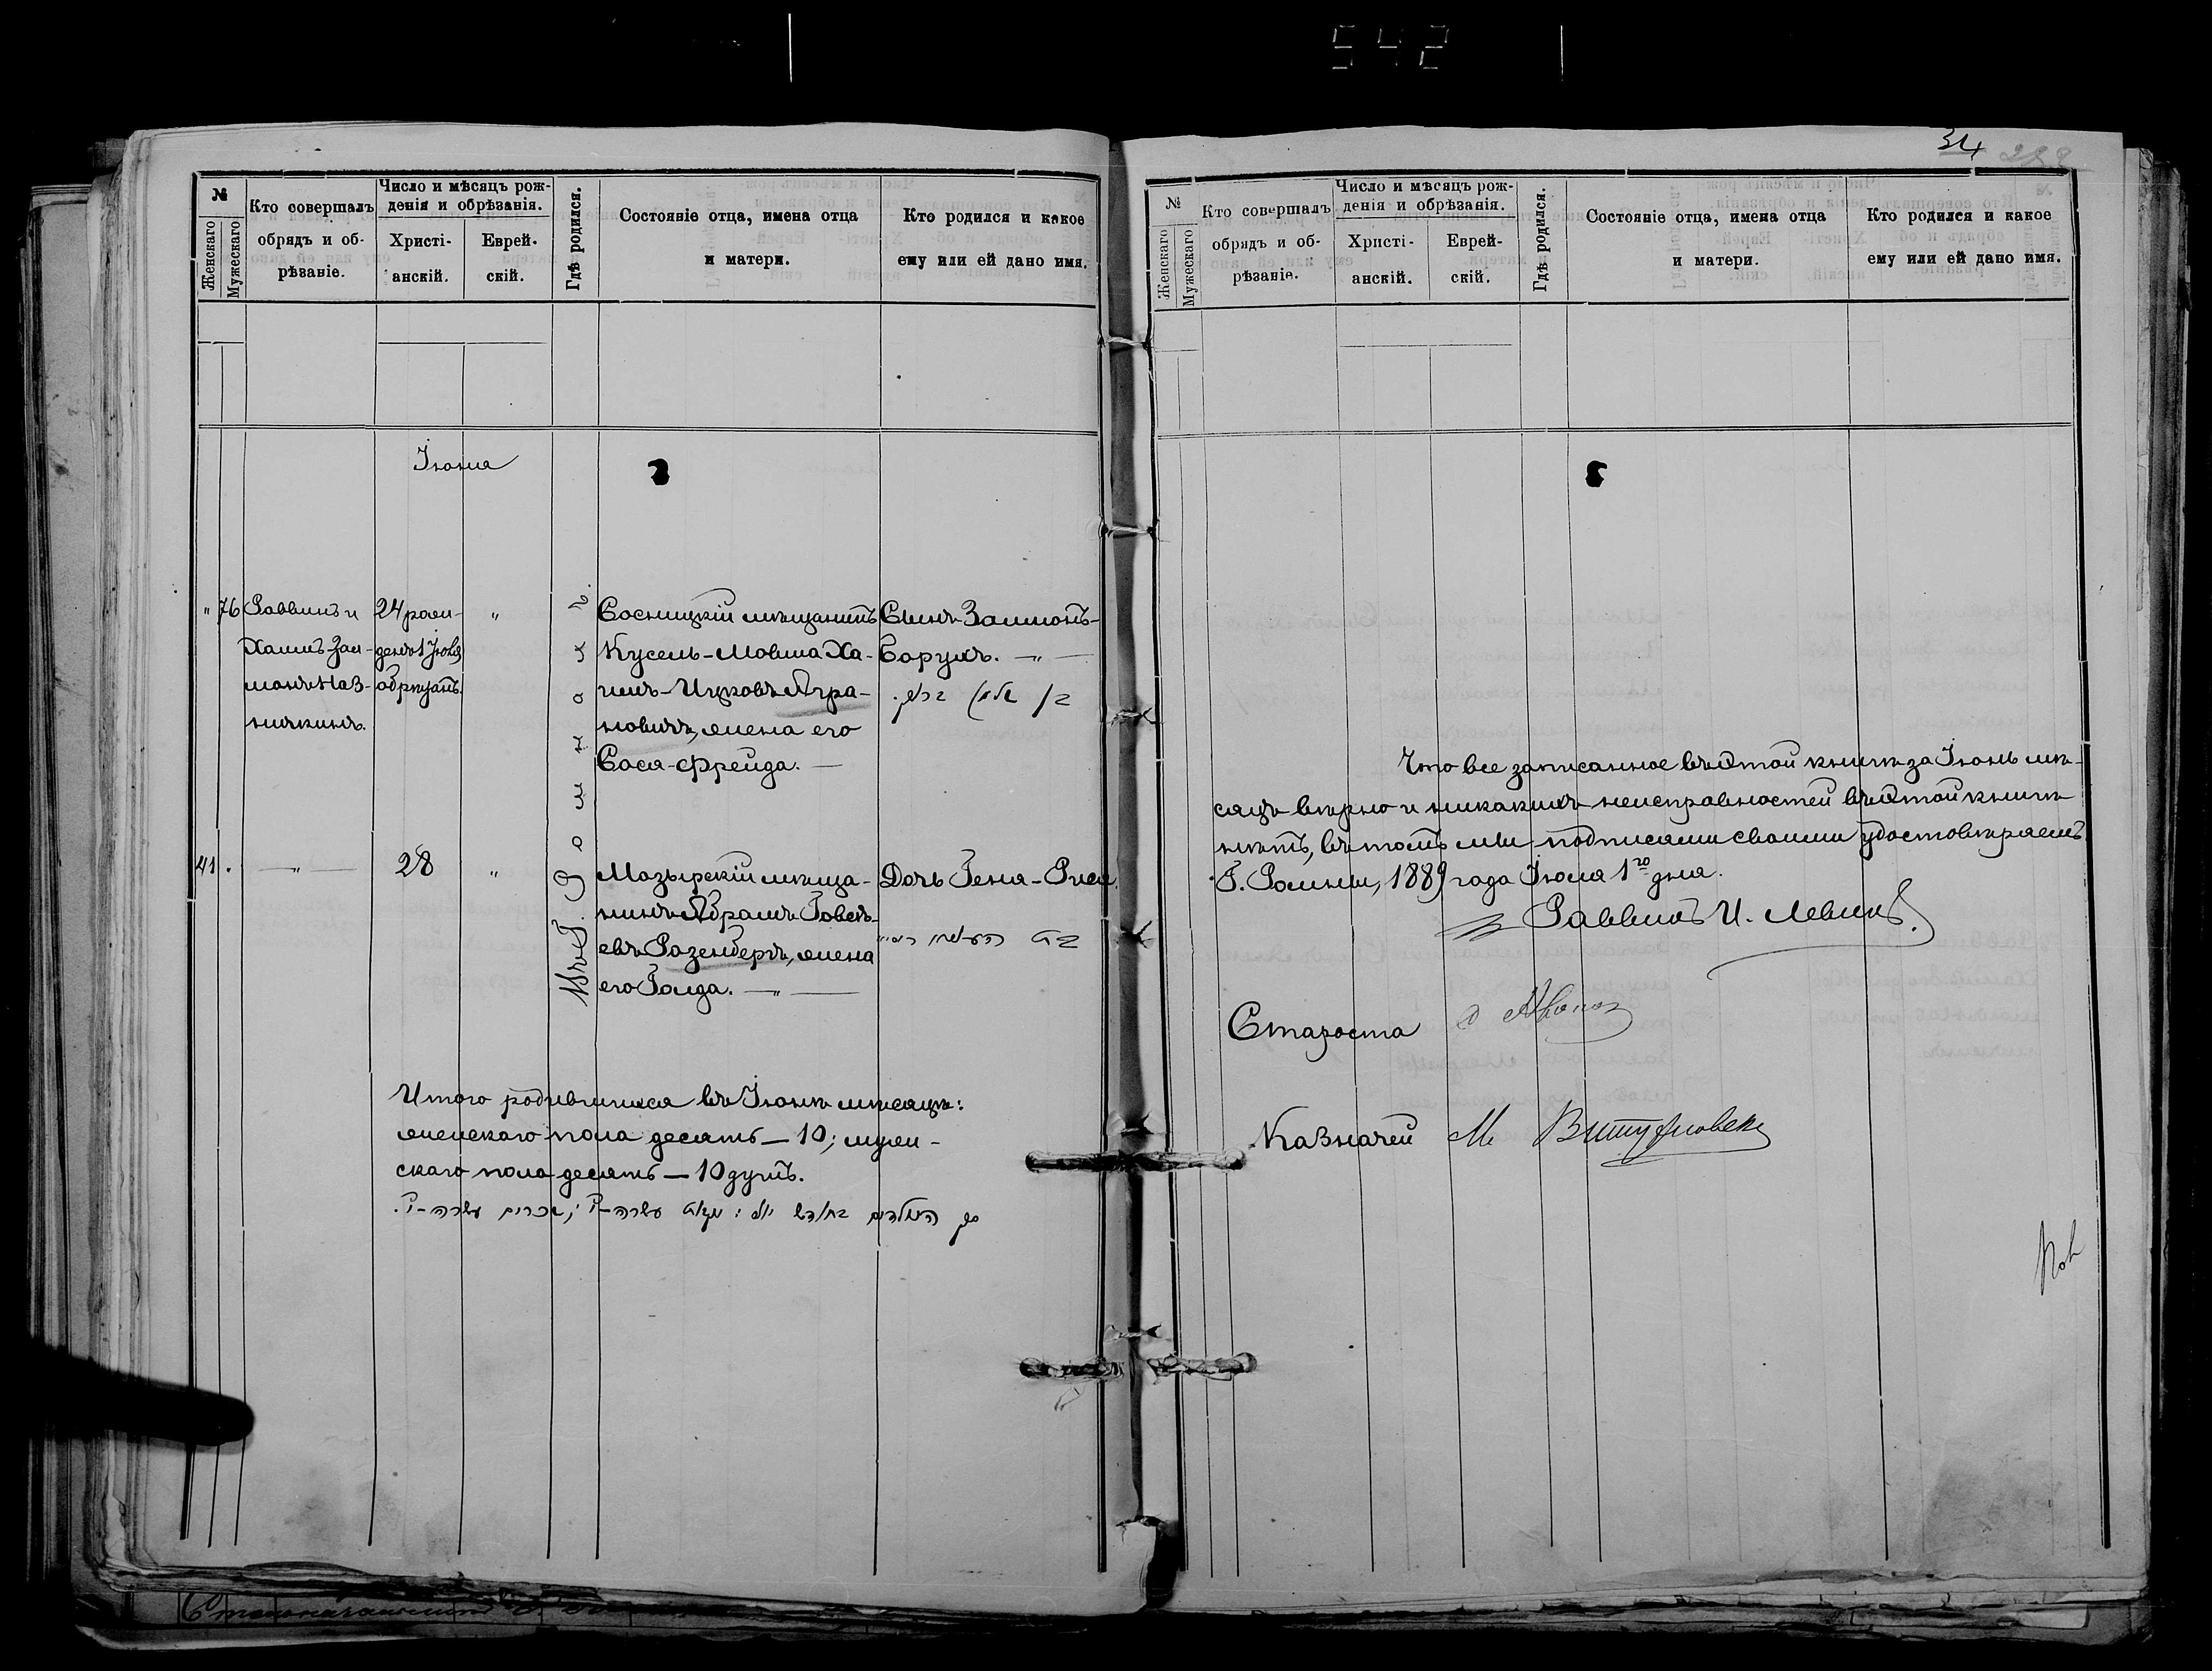 542
34
№
Женскаго
Мужескаго
Кто совершалъ
обрядъ и об-
рѣзаніе.
Число и мѣсяцъ рож-
денія и обрѣзанія.
Христі-
анскій.
Еврей-
скій.
Гдѣ родился.
Состояніе отца, имена отца
и матери.
Кто родился и какое
ему или ей дано имя.
Іюня
" 76
Раввинъ и
Хаимъ Зал-
манъ Маз-
24 рож-
денъ 1 Іюля
обрѣзанъ.
"
Въ Г. Ромнахъ.
Сосницкій мѣщанинъ
Кусель-Мовша Ха-
имъ-Ицковъ Агра-
новичъ, жена его
Сося-Фрейда. —
Сынъ Залмонъ-
Борухъ. — " —
41 .
— " —
28
"
Мозырскій мѣща-
нинъ Абрамъ Говсѣ-
евъ Розенбергъ, жена
его Голда. — " —
Дочь Геня-Рися.
Итого родившихся въ Іюнѣ мѣсяцѣ:
женскаго пола десять — 10; муж-
скаго пола десять — 10 душъ.
№
Женскаго
Мужескаго
Кто совершалъ
обрядъ и об-
рѣзаніе.
Число и мѣсяцъ рож-
денія и обрѣзанія.
Христі-
анскій.
Еврей-
скій.
Гдѣ родился.
Состояніе отца, имена отца
и матери.
Кто родился и какое
ему или ей дано имя.
Что все записанное въ этой книгѣ за Іюнь мѣ-
сяцъ вѣрно и никакихъ неисправностей въ этой книгѣ
нѣтъ, въ томъ мы подписами своими удостовѣряемъ.
Г. Ромны, 1889 года Іюля 1го дня.
Раввинъ И. Левинъ.
Староста
Казначей М.